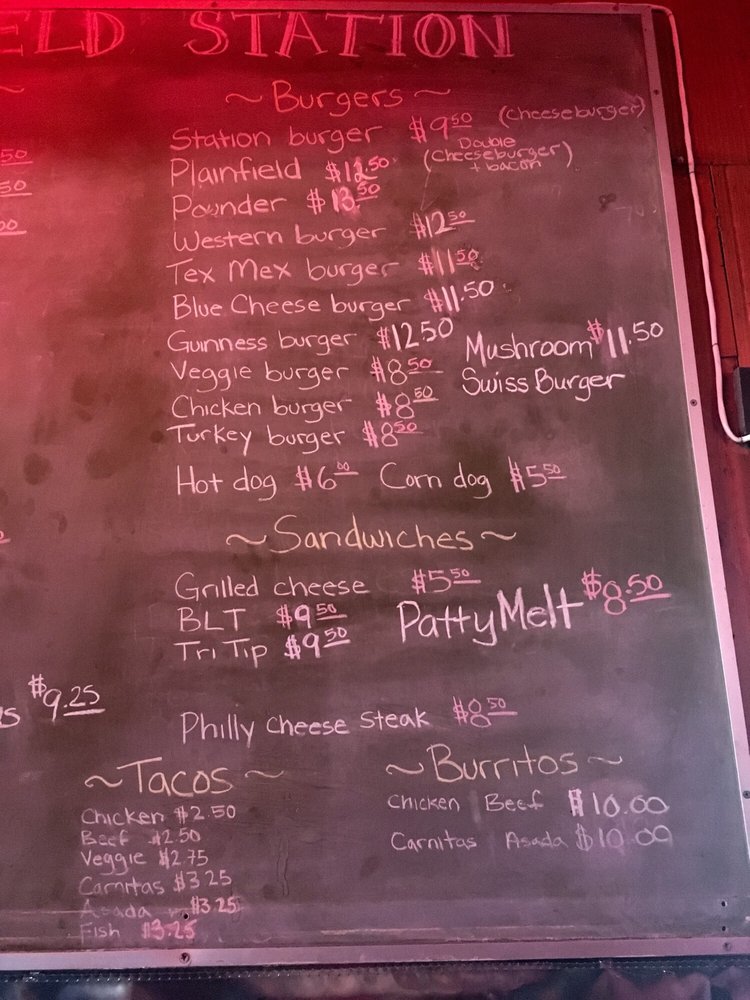 ELD STATION
~ Burgers ~
Station burger $9.50 (cheeseburger)
Plainfield $12.50 (Double cheeseburger + bacon)
Pounder $13.50
Western burger $12.50
Tex Mex burger $11.50
Blue Cheese burger $11.50
Guinness burger $12.50
Mushroom $11.50
Swiss Burger
Veggie burger $8.50
Chicken burger $8.50
Turkey burger $8.50
Hot dog $6.00 Corn dog $5.50
~ Sandwiches ~
Grilled cheese $5.50
BLT $9.50
Patty Melt $8.50
Tri Tip $9.50
Philly cheese steak $8.50
~ Tacos ~
Chicken $2.50
Beef $2.50
Veggie $2.75
Carnitas $3.25
Asada $3.25
Fish $3.25
~ Burritos ~
Chicken Beef $10.00
Carnitas Asada $10.00
50
50
00
$9.25